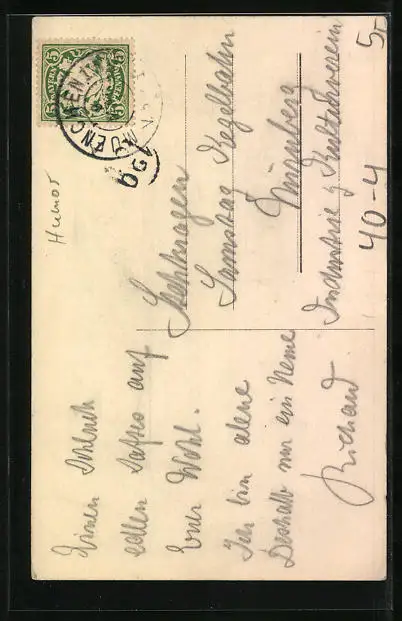 BAYERN
5 PFENNIG 5
MUENCHEN
Humor
Einen Schluck
edlen Saftes auf
Euer Wohl.
Ich bin alene
Deshalb nur ein Name
Richard
Samstag Kegelbahn
Nürnberg
Industrie & Kulturverein
40-4
5,-